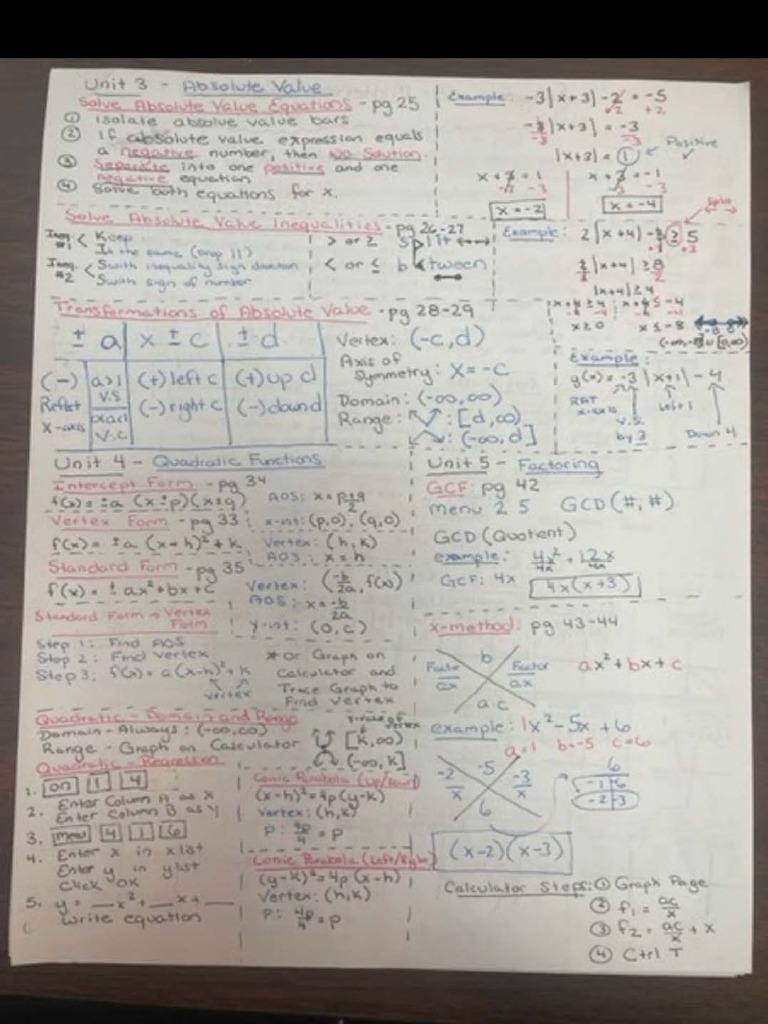 Unit 3 - Absolute Value
Solve Absolute Value Equations - pg 25
① isolate absolue value bars
② If absolute value expression equals
a negative number, then No Solution.
③ Separate into one positive and one
negative equation
④ Solve both equations for x.
Example: -3|x+3| -2 = -5
+2 +2
-3|x+3| = -3
-3 -3
|x+3| = 1 Positive ✓
x+3=1 x+3=-1
-3 -3 -3 -3
x=-2 x=-4
Solve Absolute Value Inequalities - pg 26-27
Ineq. #1 < Keep
It the same (Drop ||)
Ineq. #2 < Switch inequality sign direction
Switch sign of number
> or ≥ split
< or ≤ between
Example: 2|x+4| -3 ≥ 5 Split
+3 +3
2|x+4| ≥ 8
2 2
|x+4| ≥ 4
x+4 ≥ 4 x+4 ≤ -4
-4 -4 -4 -4
x≥0 x≤-8
(-∞,-8]∪[0,∞)
Transformations of Absolute Value - pg 28-29
± a | x ± c | ± d
(-) Reflect x-axis | a>1 V.S | (+) left c | (+) up d
V.C | (-) right c | (-) down d
Vertex: (-c,d)
Axis of
Symmetry: x=-c
Domain: (-∞,∞)
Range: : [d,∞)
: (-∞,d]
Example
g(x) = -3|x+1| -4
x-axis
V.S. by 3
Left 1
Down 4
Unit 4 - Quadratic Functions
Intercept Form - pg 34
f(x) = ±a (x±p)(x±q)
AOS: x = p+q/2
x-int: (p,0), (q,0)
Vertex Form - pg 33
f(x) = ±a (x-h)² + k
Vertex: (h,k)
AOS: x=h
Standard Form - pg 35
f(x) = ± ax²+bx+c
Vertex: (-b/2a, f(x))
AOS: x=-b/2a
y-int: (0,c)
Standard Form → Vertex Form
Step 1: Find AOS
Step 2: Find Vertex
Step 3: f(x) = a(x-h)²+k
vertex
*or Graph on
Calculator and
Trace Graph to
Find Vertex
Quadratic - Domain and Range
Domain - Always: (-∞,∞)
Range - Graph on Calculator
y-value of vertex
[k,∞)
(-∞,k]
Quadratic - Regression
1. on 1 4
2. Enter Column A as X
Enter Column B as Y
3. menu 4 1 6
4. Enter x in x list
Enter y in y list
Click OK
5. y = __x²+__x+__
Write equation
Conic Parabola (Up/Down)
(x-h)²=4p(y-k)
Vertex: (h,k)
P: 4p/4 = P
Conic Parabola (Left/Right)
(y-k)²=4p(x-h)
Vertex: (h,k)
P: 4p/4 = P
Unit 5 - Factoring
GCF: pg 42
menu 2 5 GCD(#,#)
GCD(Quotient)
example: 4x²/4x + 12x/4x
GCF: 4x 4x(x+3)
x-method: pg 43-44
b
Factor/ax Factor/ax
a·c
ax²+bx+c
example: 1x²-5x+6
a=1 b=-5 c=6
-5
-2/x -3/x
6
6
-1 -6
-2 -3
(x-2)(x-3)
Calculator Steps: ① Graph Page
② f₁ = ac/x
③ f₂ = ac/x + x
④ Ctrl T